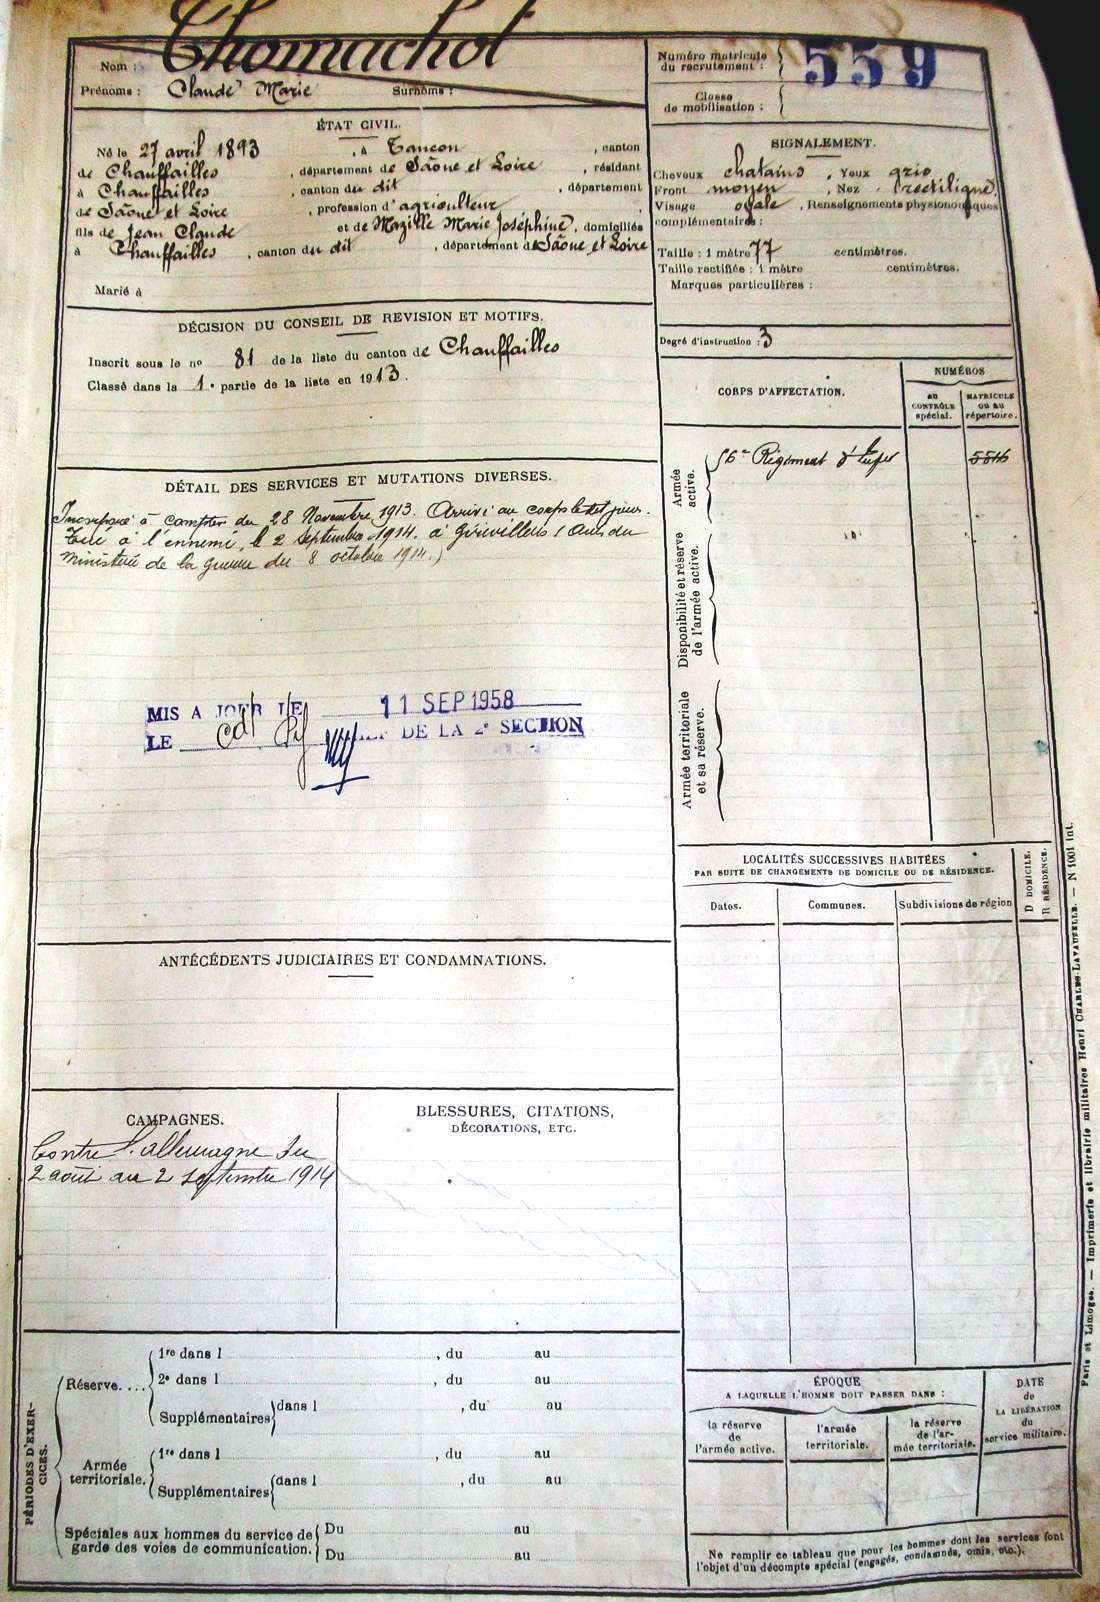 Nom : Thomachot
Prénoms : Claude Marie Surnoms :
Numéro matricule du recrutement : 559
Classe de mobilisation :
ÉTAT CIVIL.
Né le 27 avril 1893, à Tancon, canton
de Chauffailles, département de Saône et Loire, résidant
à Chauffailles, canton du dit, département
de Saône et Loire, profession d'agriculteur
fils de Jean Claude et de Mazille Marie Joséphine, domiciliés
à Chauffailles, canton du dit, département de Saône et Loire
Marié à
SIGNALEMENT.
Cheveux chatains, Yeux gris
Front moyen, Nez rectiligne,
Visage ovale, Renseignements physionomiques
complémentaires :
Taille : 1 mètre 77 centimètres.
Taille rectifiée : 1 mètre centimètres.
Marques particulières :
Degré d'instruction : 3
DÉCISION DU CONSEIL DE REVISION ET MOTIFS.
Inscrit sous le nº 81 de la liste du canton de Chauffailles
Classé dans la 1e partie de la liste en 1913.
CORPS D'AFFECTATION.
NUMÉROS
au CONTRÔLE spécial.
MATRICULE OU AU répertoire.
Armée active.
56e Régiment d'Infrie
Disponibilité et réserve de l'armée active.
Armée territoriale et sa réserve.
DÉTAIL DES SERVICES ET MUTATIONS DIVERSES.
Incorporé à compter du 28 Novembre 1913. Arrivé au corps le dit jour.
Tué à l'ennemi, le 2 Septembre 1914. à (avis du
Ministère de la guerre du 8 octobre 1914.)
MIS A JOUR LE 11 SEP 1958
LE CHEF DE LA 2e SECTION
LOCALITÉS SUCCESSIVES HABITÉES
PAR SUITE DE CHANGEMENTS DE DOMICILE OU DE RÉSIDENCE.
Dates.
Communes.
Subdivisions de région
D DOMICILE.
R RÉSIDENCE.
ANTÉCÉDENTS JUDICIAIRES ET CONDAMNATIONS.
CAMPAGNES.
Contre l'allemagne du
2 août au 2 septembre 1914
BLESSURES, CITATIONS,
DÉCORATIONS, ETC.
PÉRIODES D'EXERCICES.
Réserve....
1re dans l , du au
2e dans l , du au
Supplémentaires dans l , du au
au
Armée territoriale.
1re dans l , du au
Supplémentaires dans l , du au
Spéciales aux hommes du service de
garde des voies de communication.
Du au
Du au
ÉPOQUE
A LAQUELLE L'HOMME DOIT PASSER DANS :
la réserve de l'armée active.
l'armée territoriale.
la réserve de l'armée territoriale.
DATE de LA LIBÉRATION du service militaire.
Ne remplir ce tableau que pour les hommes dont les services font
l'objet d'un décompte spécial (engagés, condamnés, omis, etc.).
Paris et Limoges. — Imprimerie et librairie militaires Henri CHARLES-LAVAUZELLE. — N 1001 int.